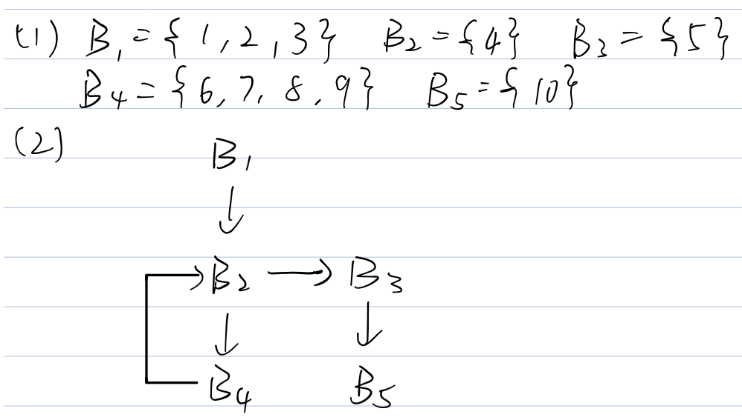 (1) B₁={1,2,3} B₂={4} B₃={5}
B₄={6,7,8,9} B₅={10}
(2)
B₁
↓
→B₂ → B₃
↓ ↓
B₄ B₅